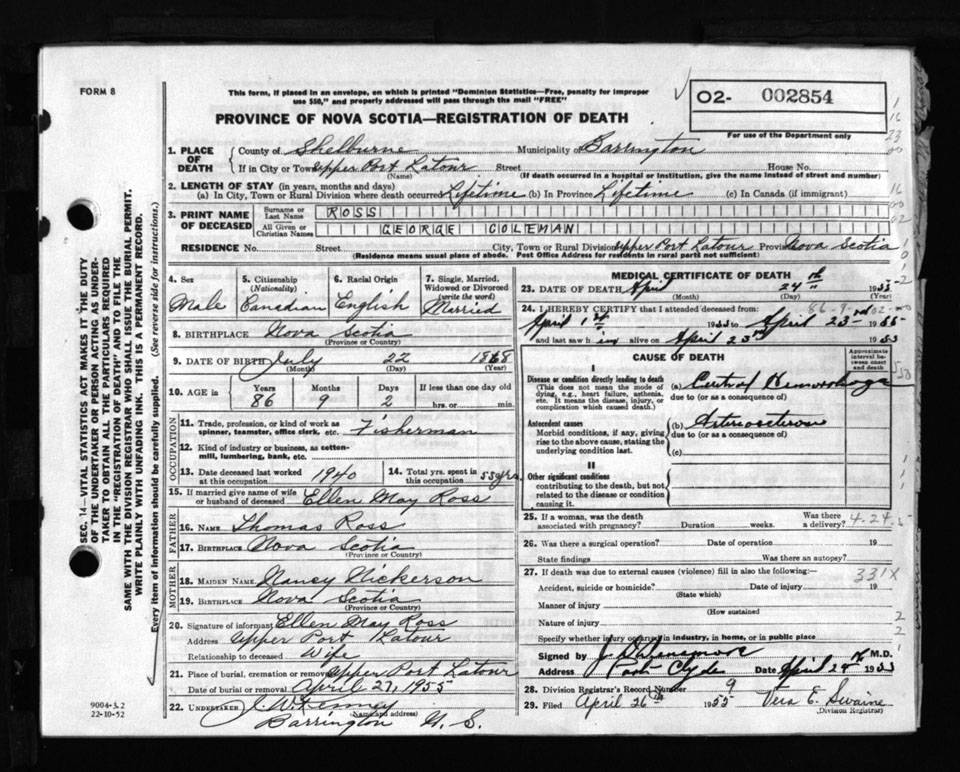 FORM 8
This form, if placed in an envelope, on which is printed "Dominion Statistics—Free, penalty for improper
use $50," and properly addressed will pass through the mail "FREE"
PROVINCE OF NOVA SCOTIA—REGISTRATION OF DEATH
O2- 002854
For use of the Department only
1. PLACE OF DEATH County of Shelburne Municipality of Barrington
If in City or Town Upper Port Latour Street House No.
(Name) (If death occurred in a hospital or institution, give the name instead of street and number)
2. LENGTH OF STAY (in years, months and days)
(a) In City, Town or Rural Division where death occurred Lifetime (b) In Province Lifetime (c) In Canada (if immigrant)
3. PRINT NAME OF DECEASED Surname or Last Name ROSS
All Given or Christian Names GEORGE COLEMAN
RESIDENCE No. Street City, Town or Rural Division Upper Port Latour Province Nova Scotia
(Residence means usual place of abode. Post Office Address for residents in rural parts not sufficient)
4. Sex Male
5. Citizenship (Nationality) Canadian
6. Racial Origin English
7. Single, Married, Widowed or Divorced (write the word) Married
8. BIRTHPLACE Nova Scotia
(Province or Country)
9. DATE OF BIRTH July 22 1868
(Month) (Day) (Year)
10. AGE in Years 86 Months 9 Days 2 If less than one day old hrs. or min.
OCCUPATION
11. Trade, profession, or kind of work as spinner, teamster, office clerk, etc. Fisherman
12. Kind of industry or business, as cotton-mill, lumbering, bank, etc.
13. Date deceased last worked at this occupation 1940
14. Total yrs. spent in this occupation 55 yrs
15. If married give name of wife or husband of deceased Ellen May Ross
FATHER
16. NAME Thomas Ross
17. BIRTHPLACE Nova Scotia
(Province or Country)
MOTHER
18. MAIDEN NAME Nancy Nickerson
19. BIRTHPLACE Nova Scotia
(Province or Country)
20. Signature of informant Ellen May Ross
Address Upper Port Latour
Relationship to deceased Wife
21. Place of burial, cremation or removal Upper Port Latour
Date of burial or removal April 27, 1955
22. UNDERTAKER J. W. Kenney
(Name and address)
Barrington N. S.
MEDICAL CERTIFICATE OF DEATH
23. DATE OF DEATH April 24th 1955
(Month) (Day) (Year)
24. I HEREBY CERTIFY that I attended deceased from: 86-9-02-00
April 1st 1955 to April 23rd 1955
and last saw h im alive on April 23rd 1955
CAUSE OF DEATH
Approximate interval between onset and death
I
Disease or condition directly leading to death
(This does not mean the mode of dying, e.g., heart failure, asthenia, etc. It means the disease, injury, or complication which caused death.)
(a) Hemorrhage
due to (or as a consequence of)
Antecedent causes
Morbid conditions, if any, giving rise to the above cause, stating the underlying condition last.
(b)
due to (or as a consequence of)
(c)
II
Other significant conditions
contributing to the death, but not related to the disease or condition causing it.
25. If a woman, was the death associated with pregnancy? Duration weeks. Was there a delivery? 4-24-5
26. Was there a surgical operation? Date of operation 19
State findings Was there an autopsy?
27. If death was due to external causes (violence) fill in also the following:— 331X
Accident, suicide or homicide? Date of injury 19
(State which)
Manner of injury
(How sustained
Nature of injury
Specify whether injury occurred in industry, in home, or in public place
Signed by M.D.
Address Port Clyde Date April 24th 1955
28. Division Registrar's Record Number 9
29. Filed April 26th 1955 Vera E. Swaine
(Division Registrar)
SEC. 14—VITAL STATISTICS ACT MAKES IT THE DUTY
OF THE UNDERTAKER OR PERSON ACTING AS UNDER-
TAKER TO OBTAIN ALL THE PARTICULARS REQUIRED
IN THE "REGISTRATION OF DEATH" AND TO FILE THE
SAME WITH THE DIVISION REGISTRAR WHO SHALL ISSUE THE BURIAL PERMIT.
WRITE PLAINLY WITH UNFADING INK. THIS IS A PERMANENT RECORD.
Every item of information should be carefully supplied. (See reverse side for instructions.)
9004-3.2
22-10-52